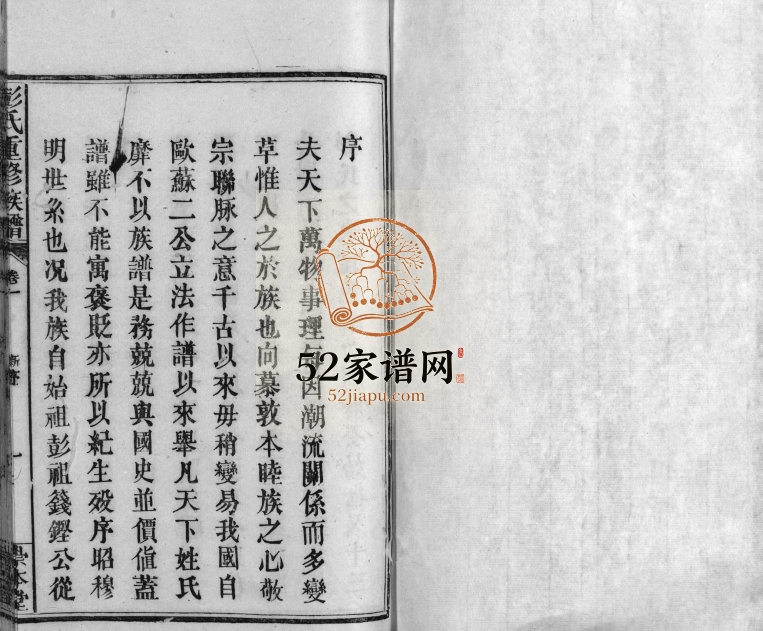 序
夫天下萬物事理每因潮流關係而多變
草惟人之於族也向慕敦本睦族之心敬
宗聯脉之意千古以來毋稍變易我國自
歐蘇二公立法作譜以來舉凡天下姓氏
靡不以族譜是務兢兢與國史並價值蓋
譜雖不能寓褒貶亦所以紀生殁序昭穆
明世系也况我族自始祖彭祖籛鏗公從
彭氏重修族譜
卷一
新序
一
本堂
52家谱网
52jiapu.com